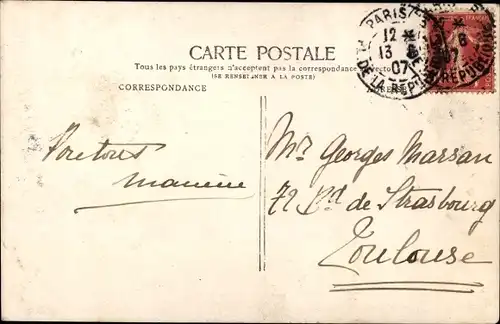 CARTE POSTALE
Tous les pays étrangers n'acceptent pas la correspondance au recto
(SE RENSEIGNER A LA POSTE)
CORRESPONDANCE
PARIS
12
13
07
DE LA REPUBLIQUE
REPUBLIQUE
Mr Georges Marsan
72 Bd de Strasbourg
Toulouse